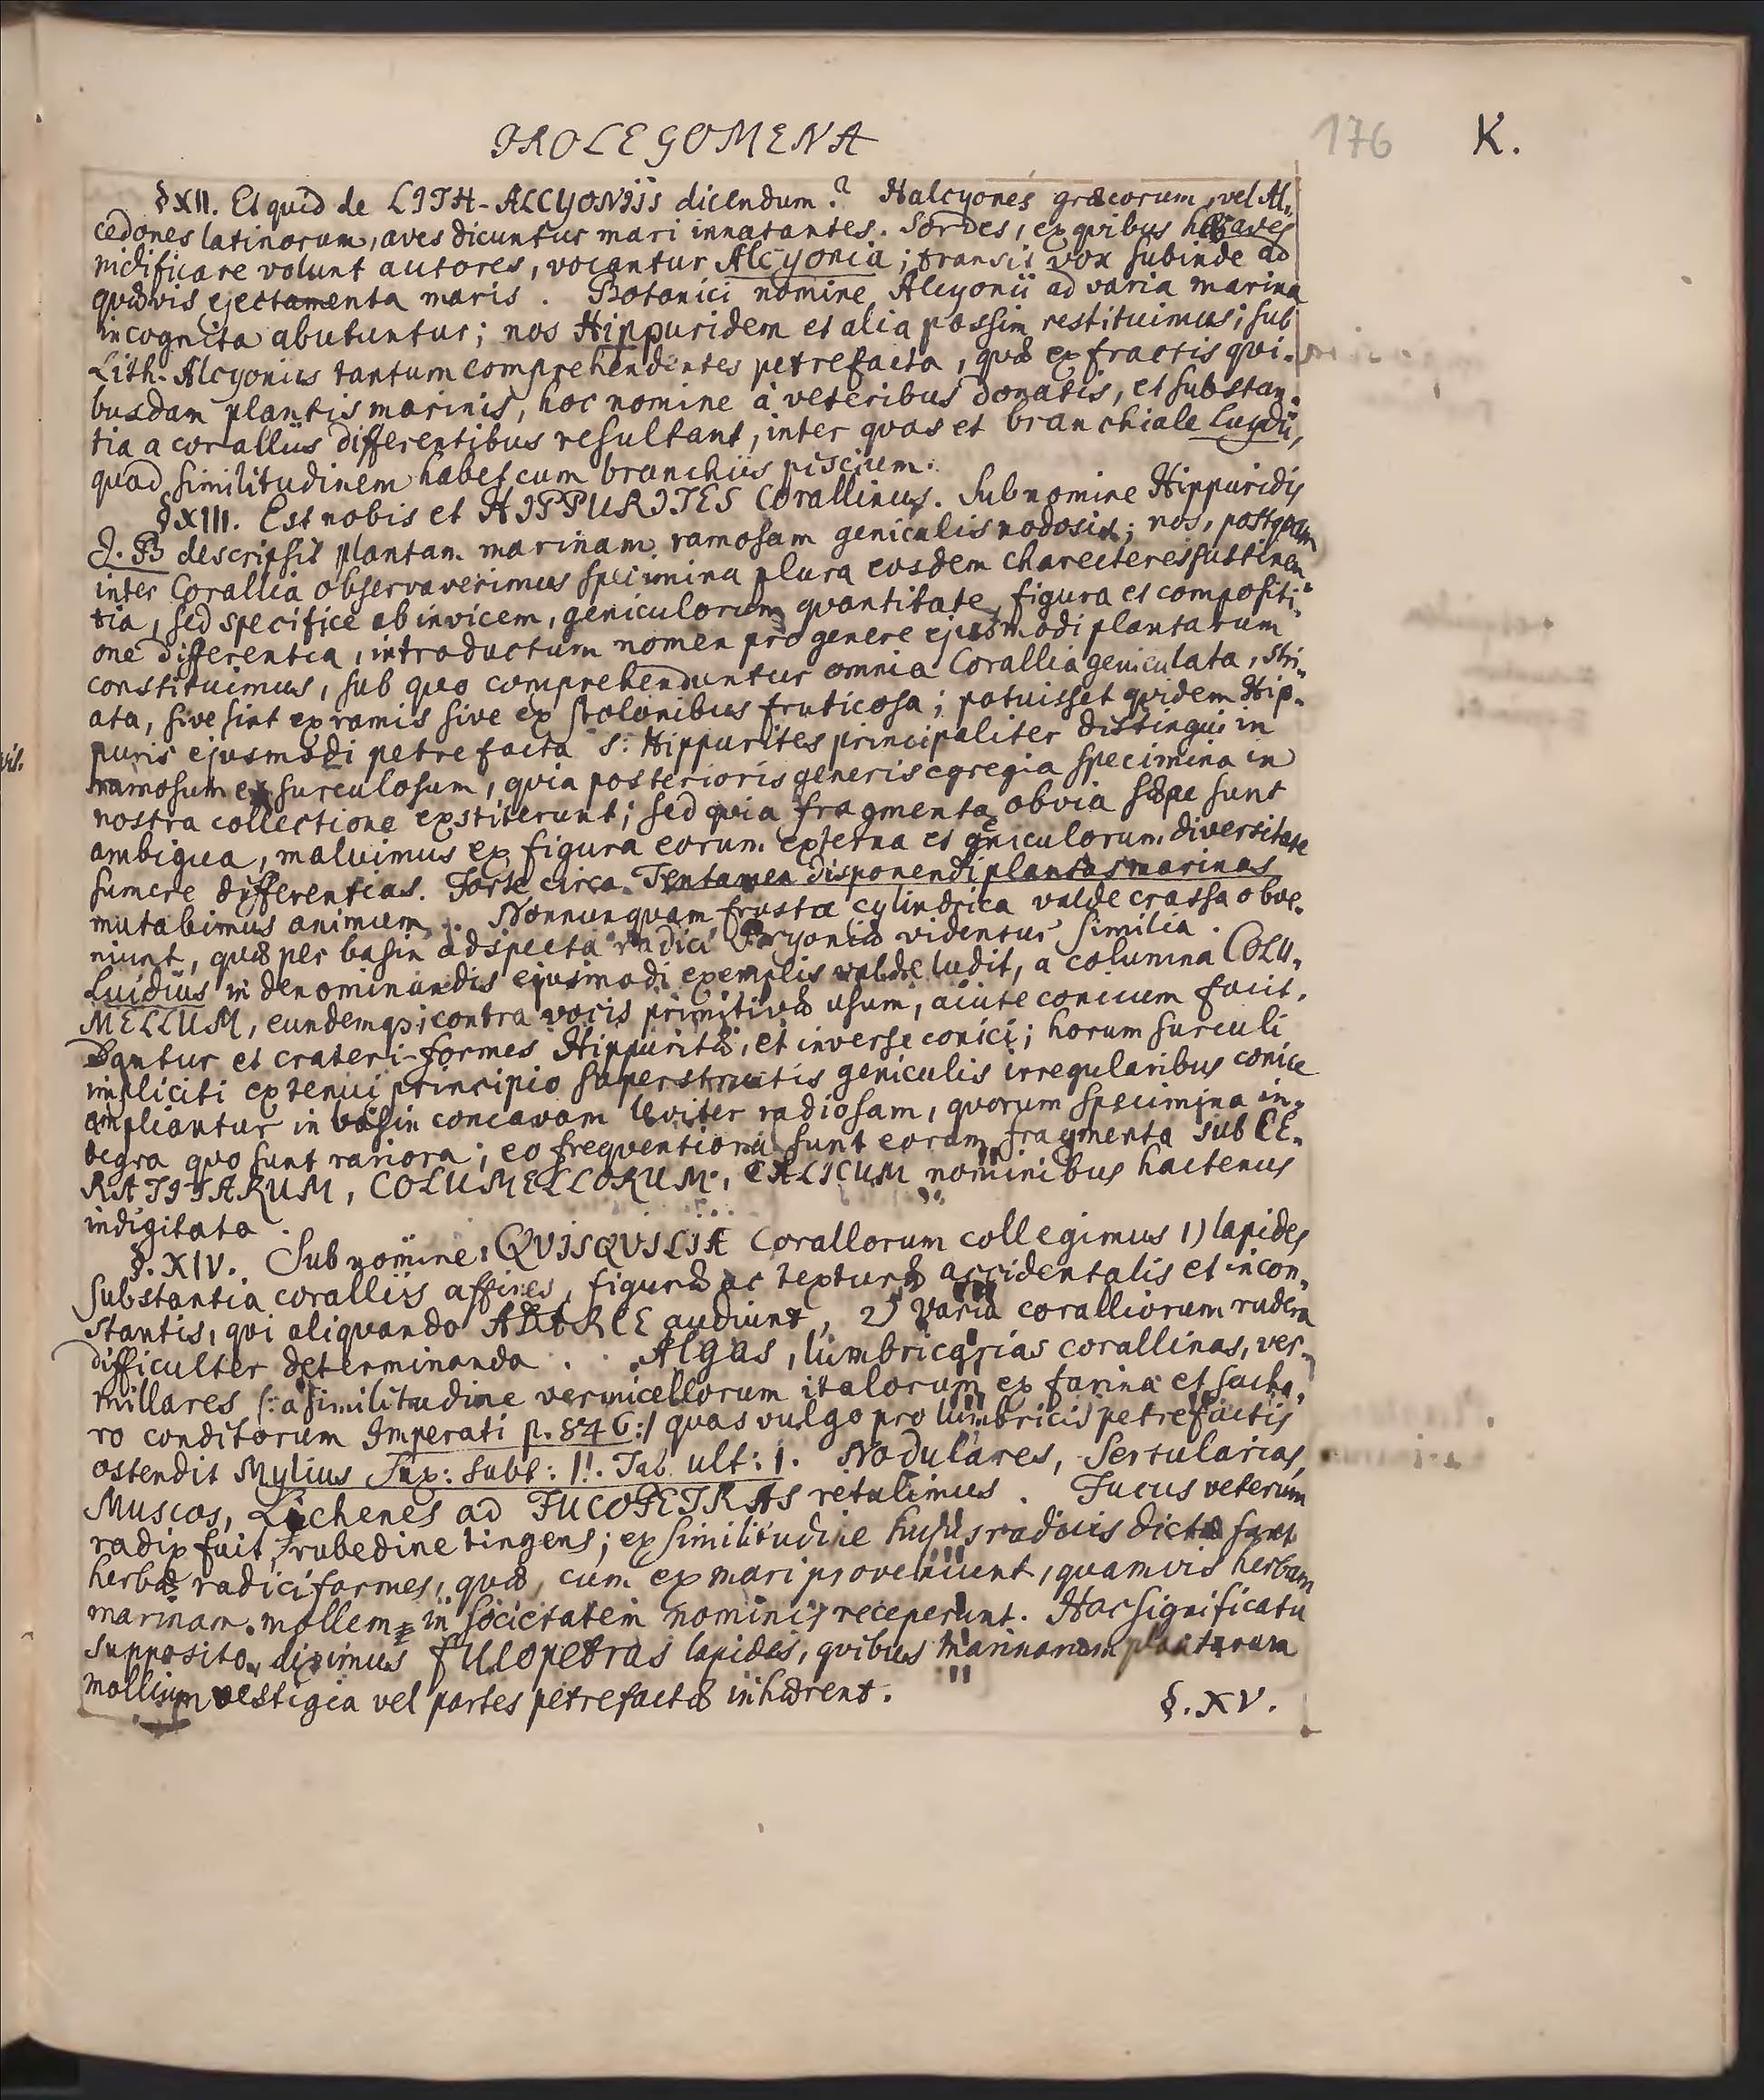 PROLEGOMENA
176 K.
§ XII. Et quid de LITH-ALCYONIIS dicendum? Halcyones græcorum, vel Al-
cedones latinorum, aves dicuntur mari innatantes. Sordes, ex quibus aves
nidificare volunt autores, vocantur Alcyonia; transit vox subinde ad
quævis ejectamenta maris. Botanici nomine Alcyonii ad varia marina
incognita abutuntur; nos Hippuridem et alia passim restituimus; sub
Lith-Alcyoniis tantum comprehendentes petrefacta, quæ ex fractis qvi-
busdam plantis marinis, hoc nomine à veteribus donatis, et substan-
tia a coralliis differentibus resultant, inter quas et branchiale Luydii,
quod similitudinem habet cum branchiis piscium.
§ XIII. Est nobis et HIPPURITES Corallinus. Sub nomine Hippuridis
J. B descripsit plantam marinam ramosam geniculis nodosis; nos, postquam
inter Corallia observaverimus specimina plura eosdem charecteres sustinen-
tia, sed specifice ab invicem, geniculorum quantitate, figura et compositi-
one differentia, introductum nomen pro genere ejusmodi plantarum
constituimus, sub quo comprehenduntur omnia Corallia geniculata, stri-
ata, sive sint ex ramis sive ex stolonibus fruticosa; potuisset qvidem Hip-
puris ejusmodi petrefacta s: Hippurites principaliter distingui in
ramosum et surculosum, quia posterioris generis egregia specimina in
nostra collectione exstiterunt; sed qvia fragmenta obvia sæpe sunt
ambigua, maluimus ex figura eorum externa et geniculorum diversitate
sumere differentias. Forte circa Tentamen disponendi plantas marinas
mutabimus animum. Nonnunquam frusta cylindrica valde crassa obve-
niunt, quæ per basin adspecta radici videntur similia.
Luidius in denominandis ejusmodi exemplis valde ludit, a columna COLU-
MELLUM, eundemqs; contra vocis primitivæ usum, acute conicum facit.
Dantur et crateri-formes Hippuritæ, et inverse conici; horum surculi
impliciti ex tenui principio superstructis geniculis irregularibus conice
ampliantur in basin concavam leviter radiosam, quorum specimina in-
tegra quo sunt rariora; eo freqventiora sunt eorum fragmenta sub CE-
RATITARUM, COLUMELLORUM, CALICUM nominibus hactenus
indigitata.
§. XIV. Sub nomine QVISQVILIÆ Corallorum collegimus 1) lapides
substantia coralliis affines, figuræ ac texturæ accidentalis et incon-
stantis, qvi aliqvando ADARCE audiunt, 2) Varia coralliorum rudera
difficulter determinanda. Algas, lumbricarias corallinas, ver-
millares (: a similitudine vermicellorum italorum ex farina et sacha-
ro conditorum Imperati p. 846:/ quas vulgo pro lumbricis petrefactis
ostendit Mylius Sax: subt: 11. Tab ult: 1. Nodulares, Sertularias,
Muscos, Lichenes ad FUCOPETRAS retulimus. Fucus veterum
radix fuit, rubedine tingens; ex similitudine hujus radicis dictæ sunt
herbæ radiciformes, quæ, cum ex mari proveniunt, quamvis herbam
marinam mollem in societatem nominis receperunt. Hac significatu
supposito, diximus fucopetras lapides, quibus marinarum plantarum
mollium vestigia vel partes petrefactæ inhærent.
§. XV.